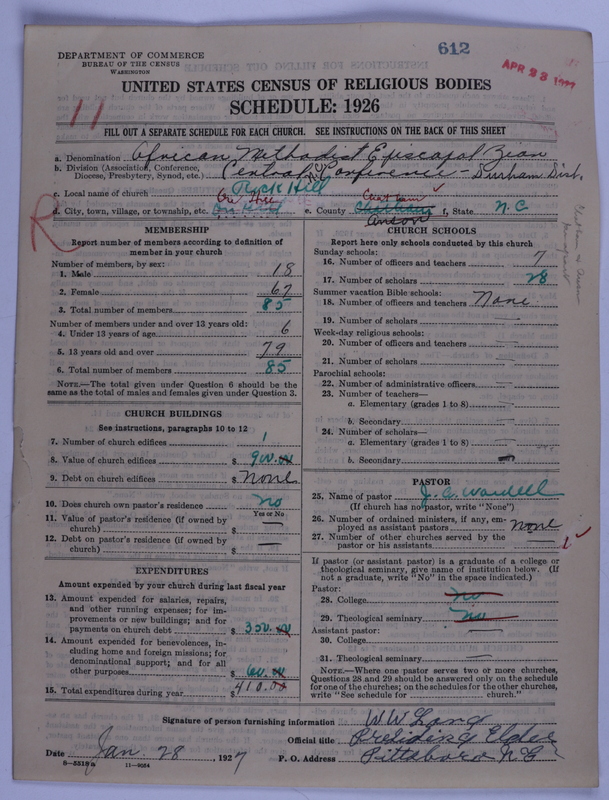 612
APR 23 1927
DEPARTMENT OF COMMERCE
BUREAU OF THE CENSUS
WASHINGTON
11
UNITED STATES CENSUS OF RELIGIOUS BODIES
SCHEDULE: 1926
FILL OUT A SEPARATE SCHEDULE FOR EACH CHURCH. SEE INSTRUCTIONS ON THE BACK OF THIS SHEET
a. Denomination African Methodist Episcopal Zion
b. Division (Association, Conference, Diocese, Presbytery, Synod, etc.) Central N.C. Conference - Durham Dist.
c. Local name of church Rock Hill
d. City, town, village, or township, etc.
e. County Chatham Chatham Anson f. State N.C.
R
MEMBERSHIP
Report number of members according to definition of
member in your church
Number of members, by sex:
1. Male 18
2. Female 67
3. Total number of members 85
Number of members under and over 13 years old:
4. Under 13 years of age 6
5. 13 years old and over 79
6. Total number of members 85
NOTE.—The total given under Question 6 should be the
same as the total of males and females given under Question 3.
CHURCH BUILDINGS
See instructions, paragraphs 10 to 12
7. Number of church edifices 1
8. Value of church edifices $ 900.00
9. Debt on church edifices $ None
10. Does church own pastor's residence No
Yes or No
11. Value of pastor's residence (if owned by
church) $ —
12. Debt on pastor's residence (if owned by
church) $ —
EXPENDITURES
Amount expended by church during last fiscal year
13. Amount expended for salaries, repairs,
and other running expenses; for im-
provements or new buildings; and for
payments on church debt $ 350.00
14. Amount expended for benevolences, in-
cluding home and foreign missions; for
denominational support; and for all
other purposes $ 60.00
15. Total expenditures during year $ 410.00
CHURCH SCHOOLS
Report here only schools conducted by this church
Sunday schools:
16. Number of officers and teachers 7
17. Number of scholars 28
Summer vacation Bible schools:
18. Number of officers and teachers None
19. Number of scholars —
Week-day religious schools:
20. Number of officers and teachers —
21. Number of scholars —
Parochial schools:
22. Number of administrative officers —
23. Number of teachers—
a. Elementary (grades 1 to 8) —
b. Secondary —
24. Number of scholars—
a. Elementary (grades 1 to 8) —
b. Secondary —
PASTOR
25. Name of pastor J. C. Waddell
(If church has no pastor, write "None")
26. Number of ordained ministers, if any, em-
ployed as assistant pastors None
27. Number of other churches served by the
pastor or his assistants
If pastor (or assistant pastor) is a graduate of a college or
theological seminary, give name of institution below. (If
not a graduate, write "No" in the space indicated.)
Pastor:
28. College No
29. Theological seminary No
Assistant pastor:
30. College —
31. Theological seminary —
NOTE.—Where one pastor serves two or more churches,
Questions 28 and 29 should be answered only on the schedule
for one of the churches; on the schedules for the other churches,
write "See schedule for church."
Signature of person furnishing information W. W. Long
Official title Presiding Elder
Date Jan. 28, 1927 P. O. Address Pittsboro N.C.
8-5518a 11-9054